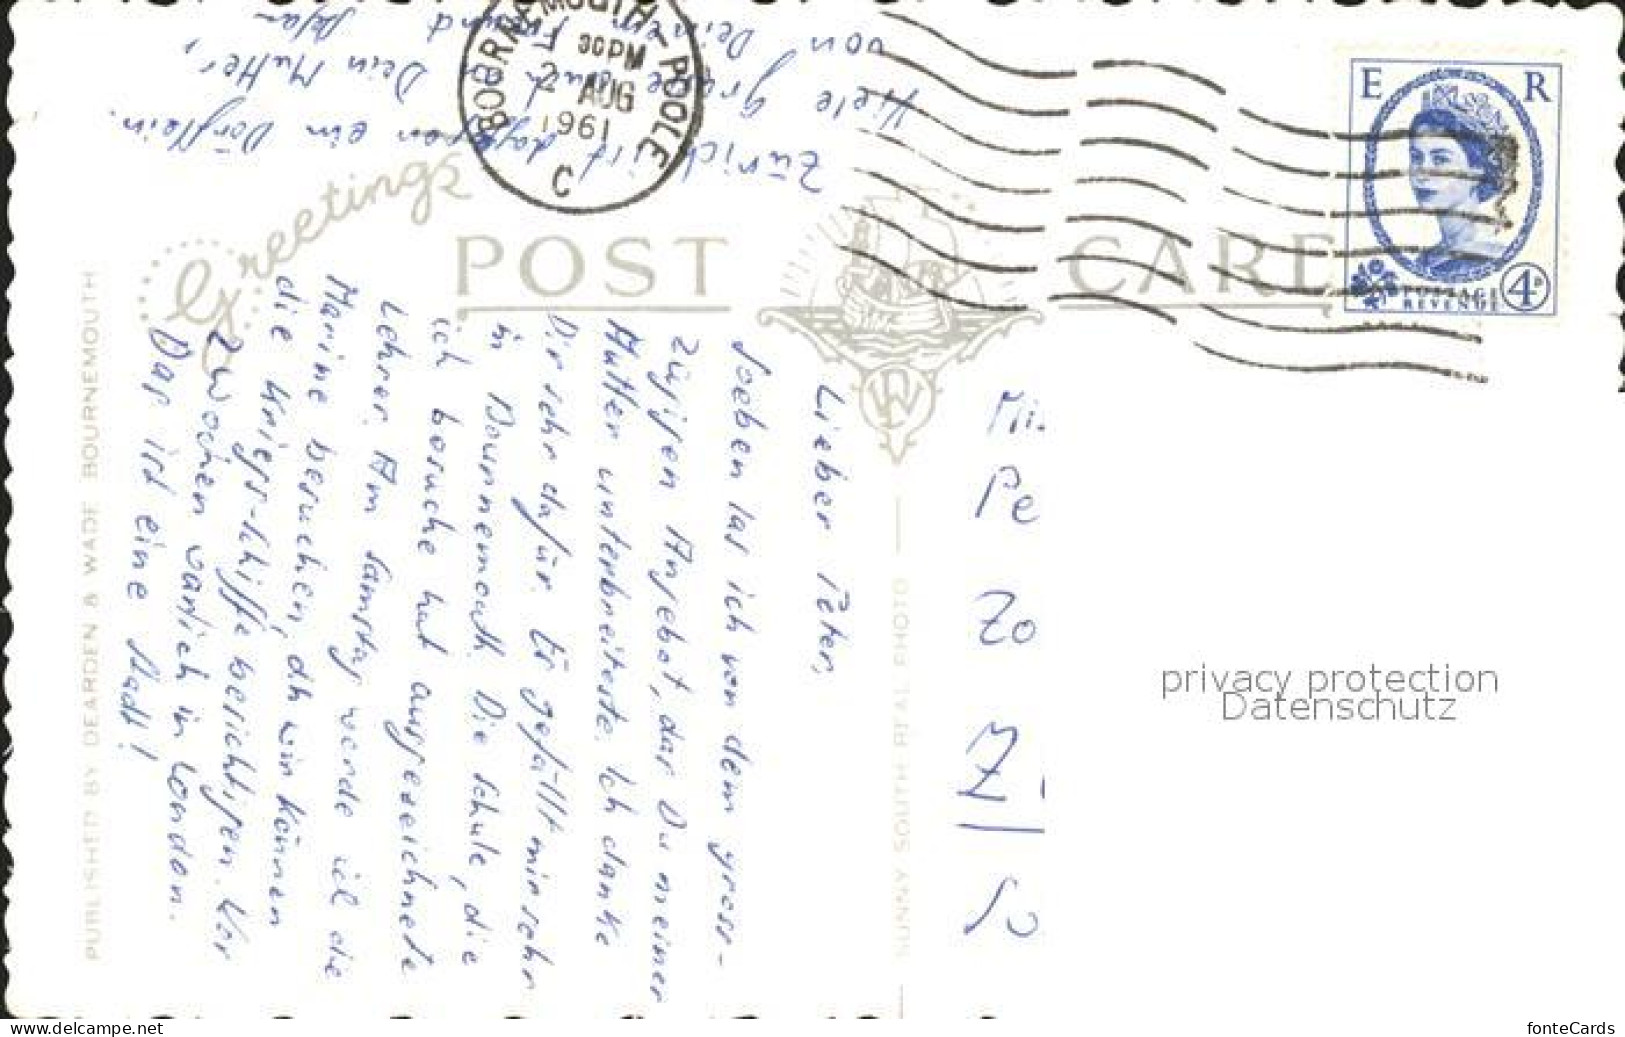 Greetings
POST CARD
PUBLISHED BY DEARDEN & WADE BOURNEMOUTH
SUNNY SOUTH REAL PHOTO
DW
BOURNEMOUTH - POOLE
30 PM
2 AUG
1961
C
E R
POSTAGE
REVENUE
4D
Lieber Peter,
Soeben las ich von dem gross-
zügigen Angebot, das Du meiner
Mutter unterbreitest. Ich danke
Dir sehr dafür. Es gefällt mir sehr
in Bournemouth. Die Schule, die
ich besuche hat ausgezeichnete
Lehrer. Am Samstag werde ich die
Marine besuchen, dh wir können
die Kriegs-schiffe besichtigen. Vor
2 Wochen war ich in London.
Das ist eine Stadt!
Zürich ist dagegen ein Dörflein.
Viele Grüsse auch Dein Mutter,
von Deinem Freund
Pe
Zo
privacy protection
Datenschutz
(c) www.delcampe.net
fonteCards